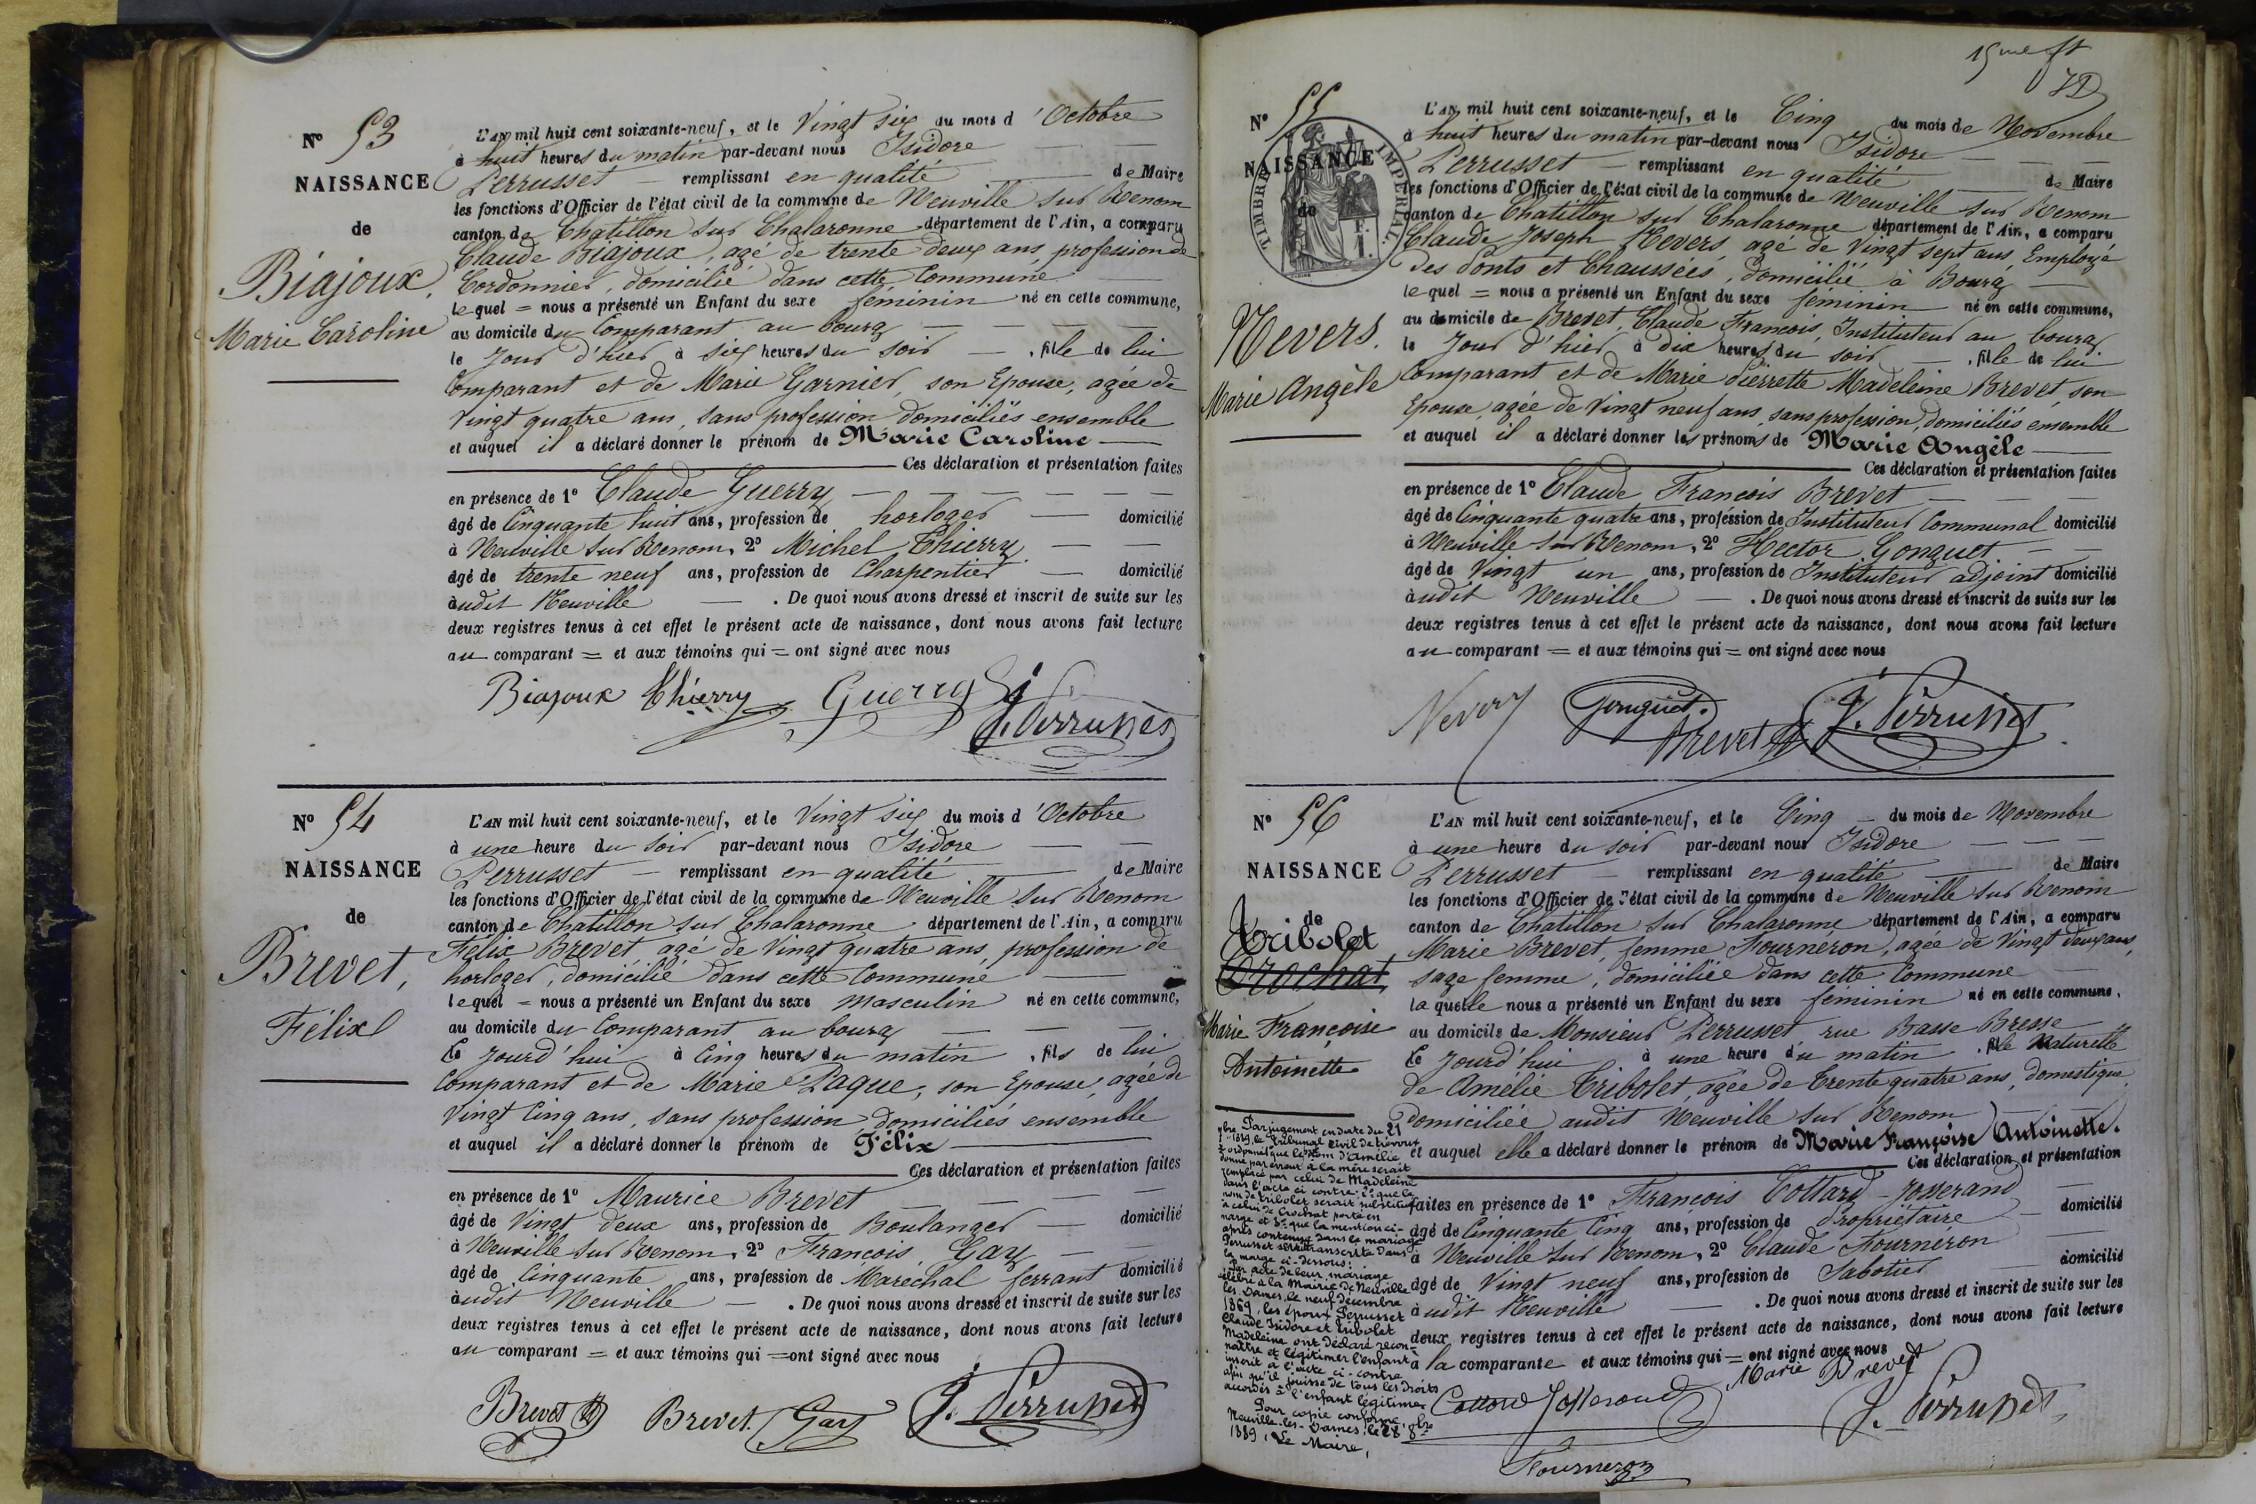 N° 53
NAISSANCE
de
Biajoux,
Marie Caroline
L'AN mil huit cent soixante-neuf, et le Vingt six du mois d'Octobre
à huit heures du matin par-devant nous Isidore
Perrusset remplissant en qualité de Maire
les fonctions d'Officier de l'état civil de la commune de Neuville sur Renom
canton de Chatillon sur Chalaronne département de l'Ain, a comparu
Claude Biajoux, agé de trente deux ans, profession de
Cordonnier, domicilié dans cette Commune
lequel = nous a présenté un Enfant du sexe féminin né en cette commune,
au domicile du Comparant au bourg
le Jour d'hier à six heures du soir, fille de lui
Comparant et de Marie Garnier, son Epouse, agée de
Vingt quatre ans, sans profession, domiciliés ensemble
et auquel il a déclaré donner le prénom de Marie Caroline
Ces déclaration et présentation faites
en présence de 1° Claude Guerry
âgé de Cinquante huit ans, profession de horloger domicilié
à Neuville sur Renom, 2° Michel Thierry
âgé de trente neuf ans, profession de Charpentier domicilié
audit Neuville. De quoi nous avons dressé et inscrit de suite sur les
deux registres tenus à cet effet le présent acte de naissance, dont nous avons fait lecture
au comparant = et aux témoins qui = ont signé avec nous
Biajoux Thierry Guerry
I. Perrusset
N° 54
NAISSANCE
de
Brevet,
Félix
L'AN mil huit cent soixante-neuf, et le Vingt six du mois d'Octobre
à une heure du soir par-devant nous Isidore
Perrusset remplissant en qualité de Maire
les fonctions d'Officier de l'état civil de la commune de Neuville sur Renom
canton de Chatillon sur Chalaronne département de l'Ain, a comparu
Félix Brevet agé de Vingt quatre ans, profession de
horloger, domicilié dans cette Commune
lequel = nous a présenté un Enfant du sexe masculin né en cette commune,
au domicile du Comparant au bourg
Ce Jourd'hui à Cinq heures du matin, fils de lui
Comparant et de Marie Paque, son Epouse, agée de
Vingt Cinq ans, sans profession, domiciliés ensemble
et auquel il a déclaré donner le prénom de Félix
Ces déclaration et présentation faites
en présence de 1° Maurice Brevet
âgé de Vingt deux ans, profession de Boulanger domicilié
à Neuville sur Renom, 2° François Gay
âgé de Cinquante ans, profession de Maréchal ferrant domicilié
audit Neuville. De quoi nous avons dressé et inscrit de suite sur les
deux registres tenus à cet effet le présent acte de naissance, dont nous avons fait lecture
au comparant = et aux témoins qui = ont signé avec nous
Brevet Brevet Gay I. Perrusset
15me ft
N° 55
NAISSANCE
de
TIMBRE IMPERIAL.
Nevers.
Marie Angèle
L'AN mil huit cent soixante-neuf, et le Cinq du mois de Novembre
à huit heures du matin par-devant nous Isidore
Perrusset remplissant en qualité de Maire
les fonctions d'Officier de l'état civil de la commune de Neuville sur Renom
canton de Chatillon sur Chalaronne département de l'Ain, a comparu
Claude Joseph Nevers, agé de Vingt sept ans, Employé
des Ponts et Chaussées, domicilié à Bourg
lequel = nous a présenté un Enfant du sexe féminin né en cette commune,
au domicile de Brevet, Claude François, Instituteur au bourg
le Jour d'hier à dix heures du soir, fille de lui
Comparant et de Marie Pierrette Madeleine Brevet, son
Epouse, agée de Vingt neuf ans, sans profession, domiciliés ensemble
et auquel il a déclaré donner les prénoms de Marie Angèle
Ces déclaration et présentation faites
en présence de 1° Claude François Brevet
âgé de Cinquante quatre ans, profession de Instituteur Communal domicilié
à Neuville sur Renom, 2° Hector Gonguet
âgé de Vingt un ans, profession de Instituteur adjoint domicilié
audit Neuville. De quoi nous avons dressé et inscrit de suite sur les
deux registres tenus à cet effet le présent acte de naissance, dont nous avons fait lecture
au comparant = et aux témoins qui = ont signé avec nous
Nevers Gonguet. Brevet I. Perrusset
N° 56
NAISSANCE
de
Tribolet
Crochat,
Marie Françoise
Antoinette
L'AN mil huit cent soixante-neuf, et le Cinq du mois de Novembre
à une heure du soir par-devant nous Isidore
Perrusset remplissant en qualité de Maire
les fonctions d'Officier de l'état civil de la commune de Neuville sur Renom
canton de Chatillon sur Chalaronne département de l'Ain, a comparu
Marie Brevet, femme Fourneron, agée de Vingt deux ans,
sage femme, domiciliée dans cette Commune
laquelle nous a présenté un Enfant du sexe féminin né en cette commune,
au domicile de Monsieur Perrusset rue Basse Bresse
Ce Jourd'hui à une heure du matin, fille Naturelle
de Amélie Tribolet, agée de Trente quatre ans, domestique,
Domiciliée audit Neuville sur Renom
et auquel elle a déclaré donner le prénom de Marie Françoise Antoinette.
Ces déclaration et présentation
faites en présence de 1° François Cottard-Josserand domicilié
âgé de Cinquante Cinq ans, profession de Propriétaire
à Neuville sur Renom, 2° Claude Fourneron domicilié
âgé de Vingt neuf ans, profession de Sabotier
audit Neuville. De quoi nous avons dressé et inscrit de suite sur les
deux registres tenus à cet effet le présent acte de naissance, dont nous avons fait lecture
à la comparante et aux témoins qui = ont signé avec nous
Marie Brevet
Cottard Josserand I. Perrusset
Fourneron
Par jugement en date du 21
1889, le Tribunal Civil de Trévoux
a ordonné que le nom d'Amélie
donné par erreur à la mère serait
remplacé par celui de Madeleine
dans l'acte ci contre, 2° que le
nom de Tribolet serait substitué
à celui de Crochat porté en
marge et 3° que la mention ci-
après contenue dans le mariage
Perrusset sera transcrite dans
la marge ci-dessous:
Par acte de leur mariage
célébré à la Mairie de Neuville
les Dames, le neuf décembre
1869, les époux Perrusset
Claude Isidore et Tribolet
Madeleine ont déclaré recon-
naître et légitimer l'enfant
inscrit à l'acte ci-contre
afin qu'il jouisse de tous les droits
accordés à l'enfant légitime.
Pour copie conforme,
Neuville-les-Dames, le 28 8bre
1889, Le Maire,